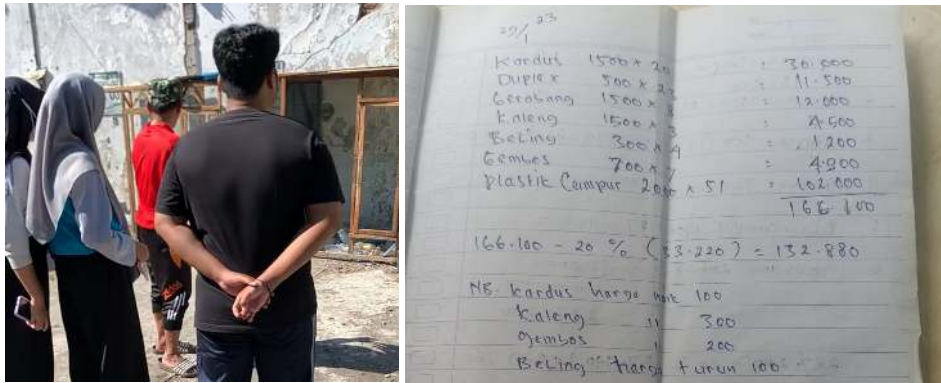 29/1 23
Kardus 1500 x 20 : 30.000
Duplex 500 x 23 : 11.500
Gerabang 1500 x 8 : 12.000
Kaleng 1500 x 3 : 4.500
Beling 300 x 4 : 1.200
Gembos 700 x 7 : 4.900
Plastik Campur 2000 x 51 = 102.000
166.100
166.100 - 20 % (33.220) = 132.880
NB. Kardus harga naik 100
Kaleng " 300
gembos " 200
Beling harga turun 100